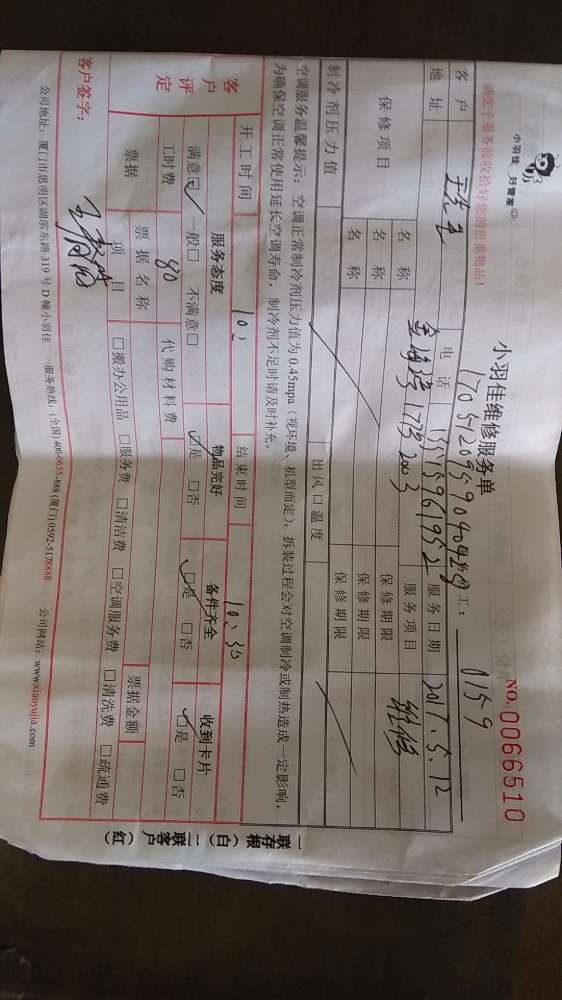 小羽佳 好管家
小羽佳维修服务单
NO.0066510
请您于服务前收拾好您的贵重物品!
工: 0159
客户 王先生 电话 服务日期 2017.5.12
地址 173# 2003 服务项目 维修
保修项目 名称 保修期限
名称 保修期限
名称 保修期限
制冷剂压力值 出风口温度
空调服务温馨提示: 空调正常制冷剂压力值为0.45mpa (视环境、机型而定), 拆装过程会对空调制冷或制热造成一定影响,
为确保空调正常使用延长空调寿命, 制冷剂不足时请及时补充。
开工时间 结束时间 10:30
客户评定 服务态度 物品完好 备件齐全 收到卡片
满意☑ 一般□ 不满意□ ☑是 □否 ☑是 □否 ☑是 □否
工时费 80 代购材料费
票据 票据名称 票据金额
项目 □搬办公用品 □服务费 □清洁费 □空调服务费 □清洗费 □疏通费
客户签字:
公司地址: 厦门市思明区湖滨东路319号D幢小羽佳 服务热线: (全国)400-6655-888 (厦门)0592-5178888 公司网站: www.xiaoyujia.com
一联存根(白) 二联客户(红)